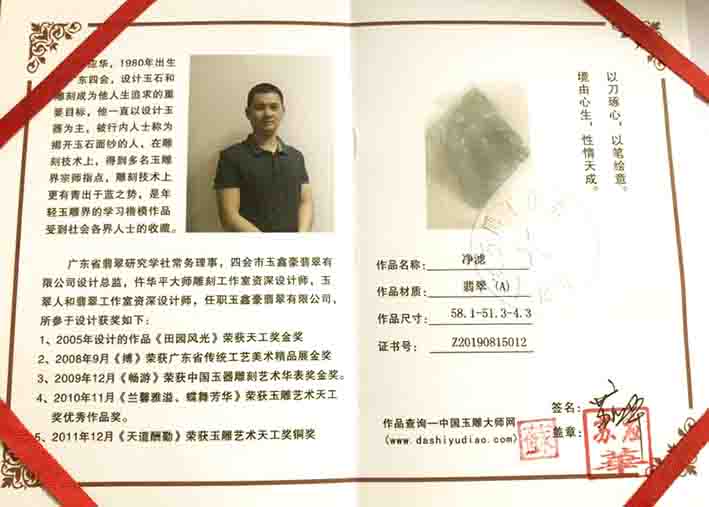 应华，1980年出生
东四会，设计玉石和
雕刻成为他人生追求的重
要目标，他一直以设计玉
器为主，被行内人士称为
揭开玉石面纱的人，在雕
刻技术上，得到多名玉雕
界宗师指点，雕刻技术上
更有青出于蓝之势，是年
轻玉雕界的学习楷模作品
受到社会各界人士的收藏。
广东省翡翠研究学社常务理事，四会市玉鑫豪翡翠有
限公司设计总监，仵华平大师雕刻工作室资深设计师，玉
翠人和翡翠工作室资深设计师，任职玉鑫豪翡翠有限公司，
所参于设计获奖如下：
1、2005年设计的作品《田园风光》荣获天工奖金奖
2、2008年9月《搏》荣获广东省传统工艺美术精品展金奖
3、2009年12月《畅游》荣获中国玉器雕刻艺术华表奖金奖。
4、2010年11月《兰馨雅溢、蝶舞芳华》荣获玉雕艺术天工
奖优秀作品奖。
5、2011年12月《天道酬勤》荣获玉雕艺术天工奖铜奖
以刀琢心，以笔绘意。
境由心生，性情天成。
作品名称： 净滤
作品材质： 翡翠 (A)
作品尺寸： 58.1-51.3-4.3
证书号： Z20190815012
签名：
作品查询—中国玉雕大师网
签章：
(www.dashiyudiao.com)
蘇
苏应
華